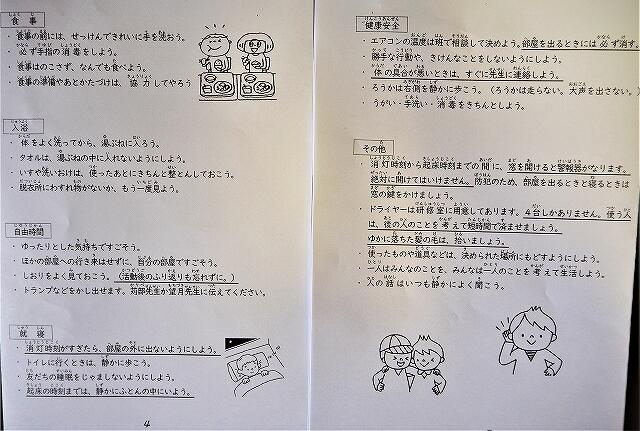 食事
・食事の前には、せっけんできれいに手を洗おう。
・必ず手指の消毒をしよう。
・食事はのこさず、なんでも食べよう。
・食事の準備やあとかたづけは、協力してやろう
入浴
・体をよく洗ってから、湯ぶねに入ろう。
・タオルは、湯ぶねの中に入れないようにしよう。
・いすや洗いおけは、使ったあとにきちんと整とんしておこう。
・脱衣所にわすれ物がないか、もう一度見よう。
自由時間
・ゆったりとした気持ちですごそう。
・ほかの部屋への行き来はせずに、自分の部屋ですごそう。
・しおりをよく見ておこう。（活動後のふり返りも忘れずに。）
・トランプなどをかし出せます。苅部先生か望月先生に伝えてください。
就寝
・消灯時刻がすぎたら、部屋の外に出ないようにしよう。
・トイレに行くときは、静かに歩こう。
・友だちの睡眠をじゃましないようにしよう。
・起床の時刻までは、静かにふとんの中にいよう。
4
健康安全
・エアコンの温度は班で相談して決めよう。部屋を出るときには必ず消す。
・勝手な行動や、きけんなことをしないようにしよう。
・体の具合が悪いときは、すぐに先生に連絡しよう。
・ろうかは右側を静かに歩こう。（ろうかは走らない。大声を出さない。）
・うがい・手洗い・消毒をきちんとしよう。
その他
・消灯時刻から起床時刻までの間に、窓を開けると警報器がなります。
絶対に開けてはいけません。防犯のため、部屋を出るときと寝るときは
窓の鍵をかけましょう。
・ドライヤーは研修室に用意してあります。４台しかありません。使う人
は、後の人のことを考えて短時間で済ませましょう。
ゆかに落ちた髪の毛は、拾いましょう。
・使ったものや道具などは、決められた場所にもどすようにしよう。
・一人はみんなのことを、みんなは一人のことを考えて生活しよう。
・人の話はいつも静かによく聞こう。